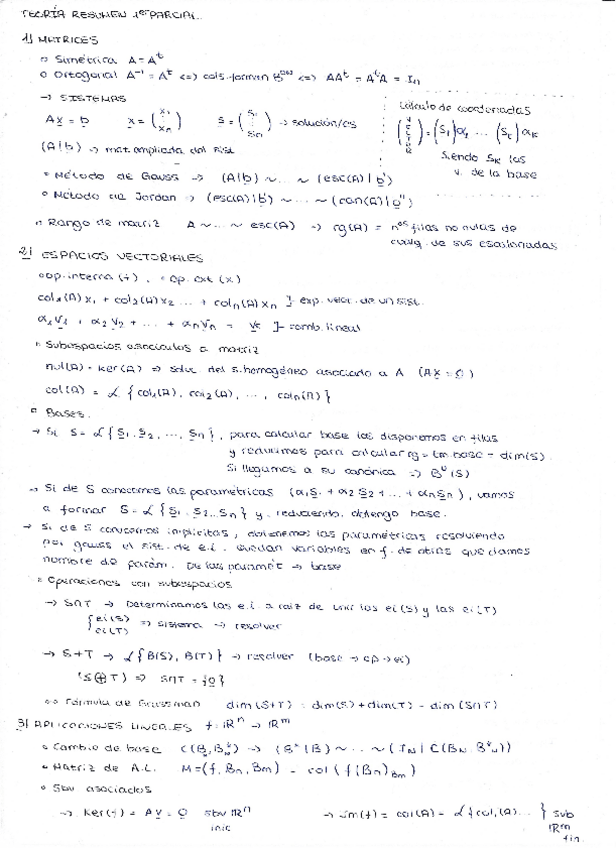 TEORÍA RESUMEN 1er PARCIAL.
1) MATRICES
▫ Simétrica A = Aᵗ
▫ Ortogonal A⁻¹ = Aᵗ <=> cols. forman B <=> AAᵗ = AᵗA = In
→ SISTEMAS
Ax = b x = (x1 ⋮ xn) s = (s1 ⋮ sn) → solución/es
Cálculo de coordenadas
(VECTOR) = (S1)α1 ... (Sk)αk
Siendo Sk los
v. de la base
(A|b) → mat. ampliada del sist.
• Método de Gauss → (A|b) ~ ... ~ (esc(A)|b')
• Método de Jordan → (esc(A)|b') ~ ... ~ (can(A)|b'')
▫ Rango de matriz A ~ ... ~ esc(A) → rg(A) = nos filas no nulas de
cualq. de sus escalonadas
2) ESPACIOS VECTORIALES
▫ op. interna (+), ▫ op. ext (x)
col1(A)x1 + col2(A)x2 ... + coln(A)xn } exp. vect. de un sist.
α1V1 + α2V2 + ... + αnVn = } comb. lineal
▫ Subespacios asociados a matriz
nul(A) = Ker(A) => soluc. del s. homogéneo asociado a A (Ax = 0)
col(A) = L {col1(A), col2(A), ..., coln(A)}
▫ Bases.
→ Si S = L {S1, S2, ..., Sn}, para calcular base los disponemos en filas
y reducimos para calcular rg = tm. base = dim(S).
Si llegamos a su canónica => (S)
→ Si de S conocemos las paramétricas (α1S1 + α2S2 + ... + αnSn), vamos
a formar S = L {S1, S2...Sn} y, reduciendo, obtengo base.
→ Si de S conocemos implícitas, obtenemos las paramétricas resolviendo
por gauss el sist. de e.i. Quedan variables en f. de otras que damos
nombre de parám. De las paramét → base
▫ Operaciones con subespacios
→ S∩T → Determinamos las e.i. a raíz de unir las ei(S) y las ei(T)
{ei(S) ei(T) => sistema → resolver
→ S+T → L {B(S), B(T)} → resolver (base → ep → ei)
(S⊕T) => S∩T = {0}
Fórmula de Grassman dim(S+T) = dim(S) + dim(T) - dim(S∩T)
3) APLICACIONES LINEALES f: ℝⁿ → ℝᵐ
• Cambio de base
• Matriz de A.L. M = (f, Bn, Bm) = col(f(Bn)Bm)
• Sbv asociados
→ Ker(f) = Av = 0 sbv ℝⁿ
inic
→ Im(f) = col(A) = L {col1(A)...} sub
ℝᵐ
fin.